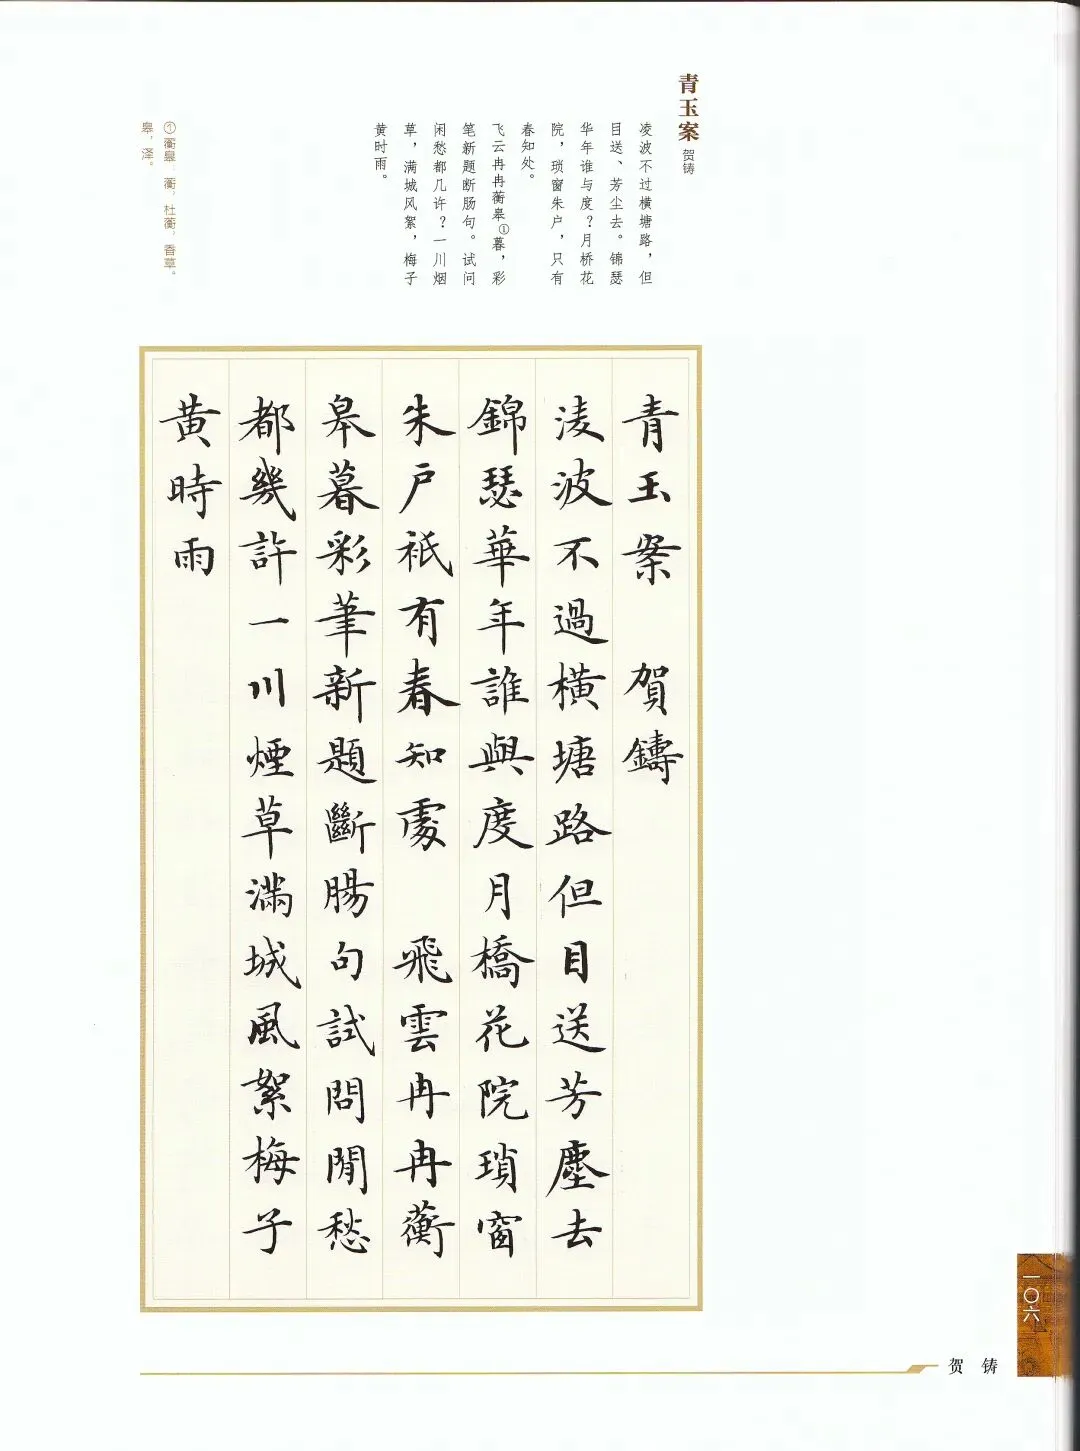 青玉案 贺铸
凌波不过横塘路，但
目送、芳尘去。锦瑟
华年谁与度？月桥花
院，琐窗朱户，只有
春知处。
飞云冉冉蘅皋①暮，彩
笔新题断肠句。试问
闲愁都几许？一川烟
草，满城风絮，梅子
黄时雨。
①蘅皋：蘅，杜蘅，香草。
皋，泽。
青玉案 賀鑄
淩波不過橫塘路但目送芳塵去
錦瑟華年誰與度月橋花院瑣窗
朱户衹有春知處 飛雲冉冉蘅
皋暮彩筆新題斷腸句試問閒愁
都幾許一川煙草滿城風絮梅子
黄時雨
一〇六
贺铸